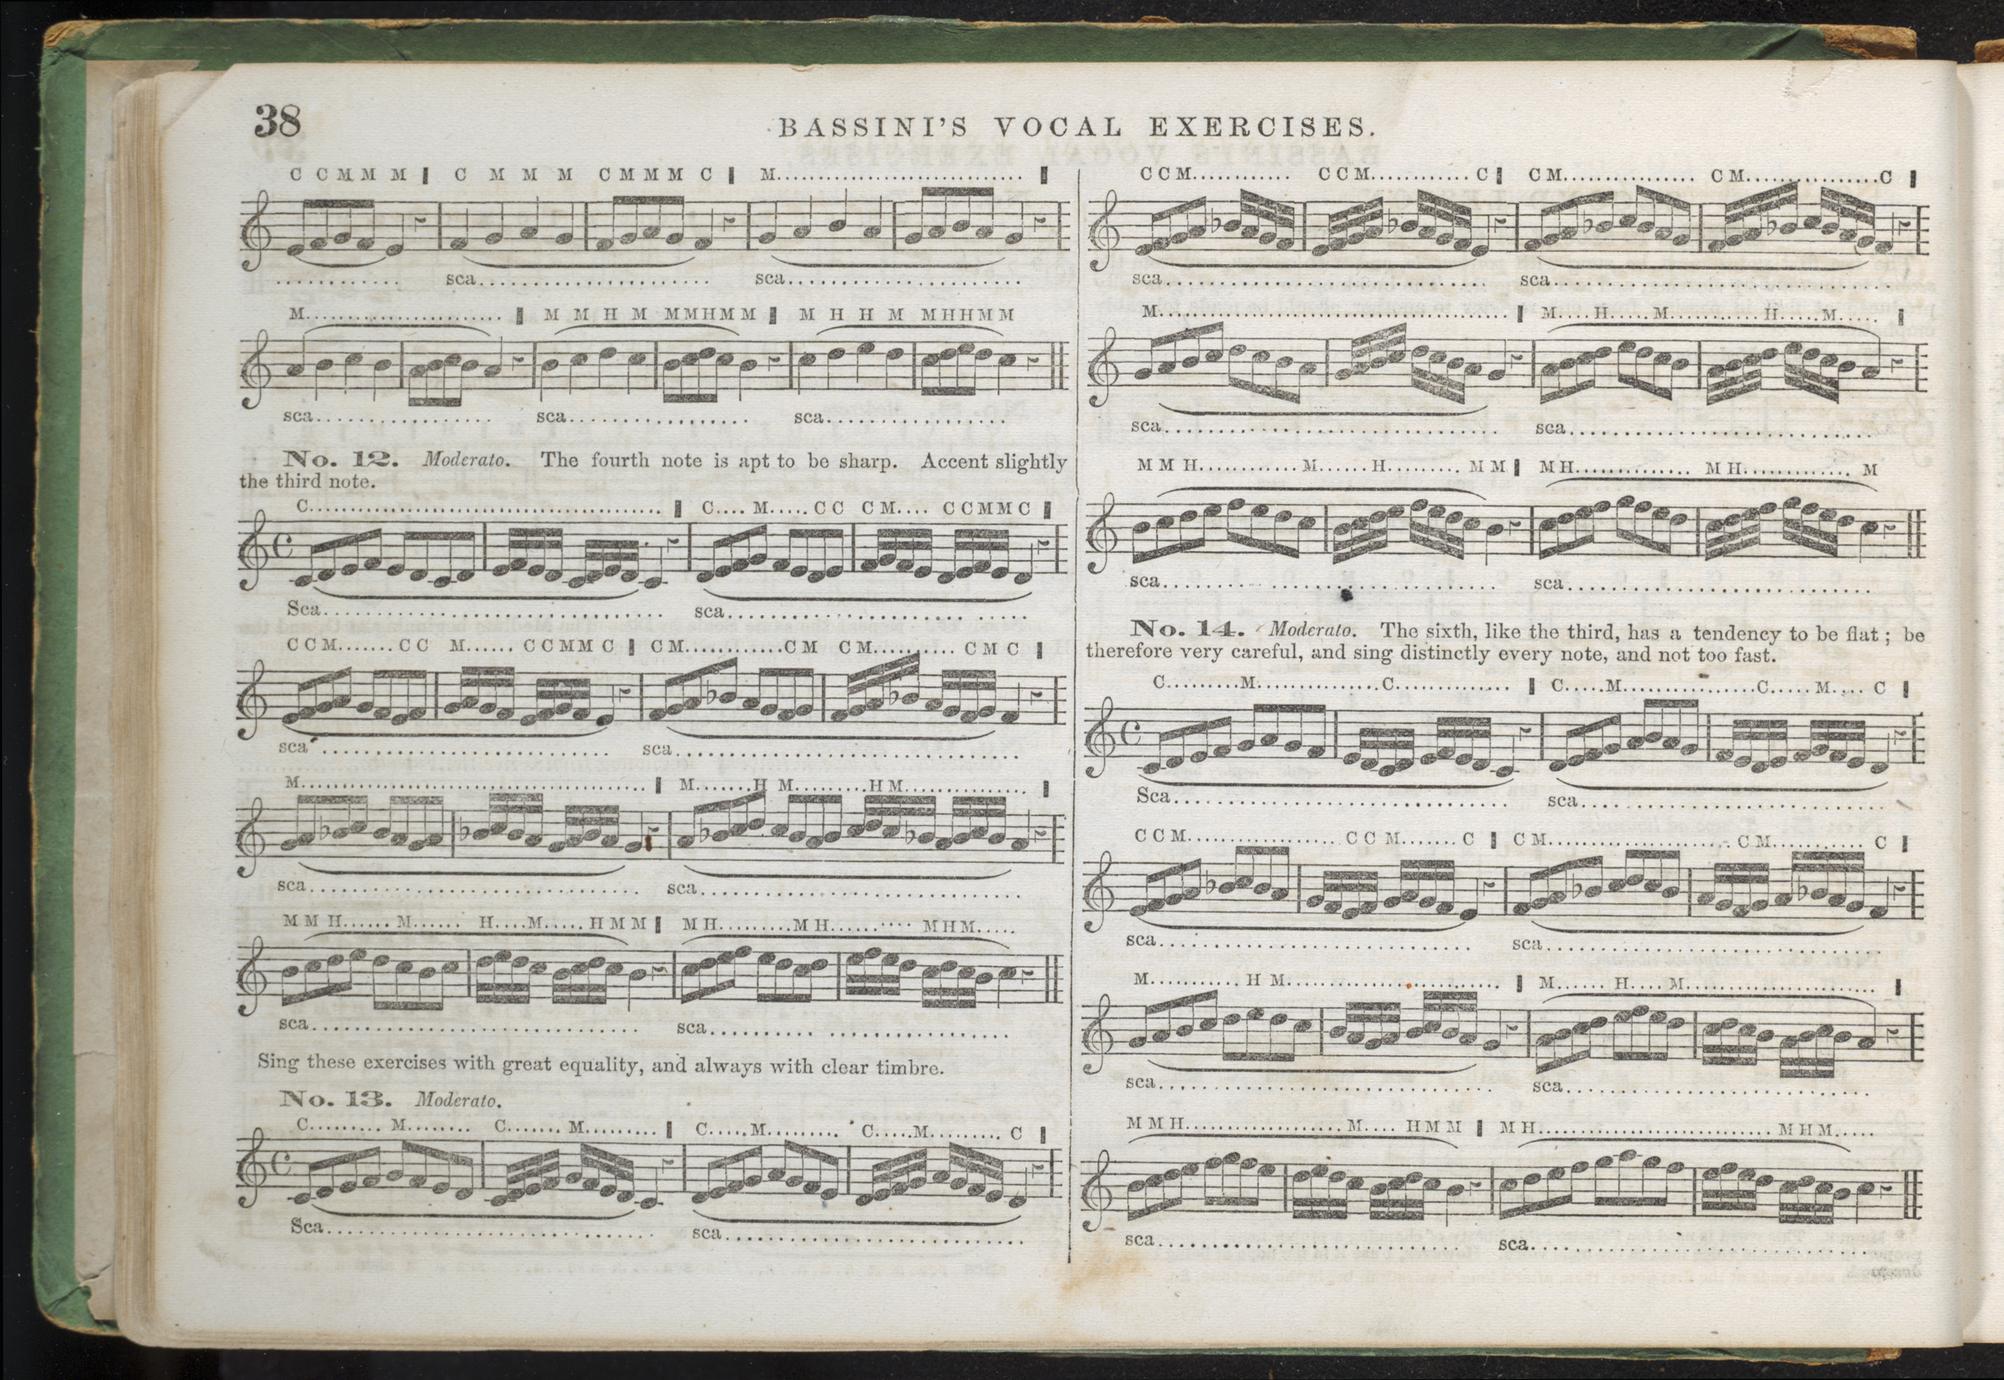 38
BASSINI'S VOCAL EXERCISES.
C C M M M C M M M C M M M C M............................
............ sca...................... sca......................
M........................ M M H M M M H M M M H H M M H H M M
sca................. sca................. sca.................
No. 12. Moderato. The fourth note is apt to be sharp. Accent slightly
the third note.
C.......................................... C.... M..... C C C M.... C C M M C
Sca.................................... sca.............................
C C M....... C C M...... C C M M C C M............. C M C M........... C M C
sca.............................. sca...................................
M......................................... M.......H M.........H M..............
sca................................... sca...................................
M M H...... M...... H....M.....H M M M H.........M H.......... M H M.....
sca................................... sca...................................
Sing these exercises with great equality, and always with clear timbre.
No. 13. Moderato.
C......... M........ C....... M......... C.....M......... C.....M......... C
Sca................................... sca...................................
C C M............ C C M............ C C M................ C M................C
sca...................................... sca......................................
M......................................... M.....H.....M...........H.....M.....
sca...................................... sca...................................
M M H............ M......H......... M M M H............. M H............. M
sca...................................... sca...................................
No. 14. Moderato. The sixth, like the third, has a tendency to be flat ; be
therefore very careful, and sing distinctly every note, and not too fast.
C.........M...............C.............. C.....M.................C..... M.... C
Sca...................................... sca...................................
C C M.................. C C M....... C C M...................... C M............ C
sca................................... sca...................................
M........... H M......................... M...... H.... M.......................
sca...................................... sca...................................
M M H................... M.... H M M M H............................. M H M.....
sca................................... sca......................................